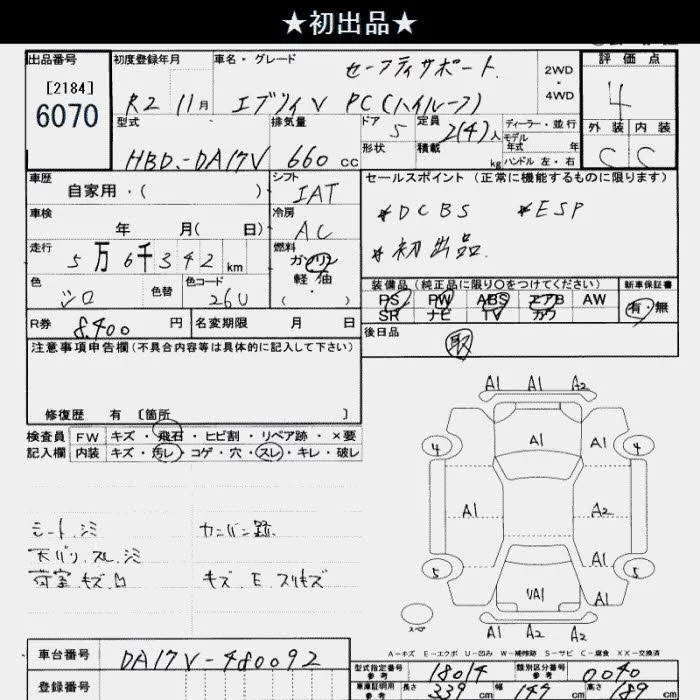 ★初出品★
出品番号
[2184]
6070
初度登録年月
R2 11月
車名・グレード
セーフティサポート
エブリィV PC(ハイルーフ)
2WD
・
4WD
評価点
4
外装 内装
C C
型式
HBD-DA17V
排気量
660 cc
ドア 5
形状
定員 2(4)人
積載 kg
ディーラー・並行
モデル年式 年
ハンドル 左・右
車歴
自家用・( )
シフト
IAT
セールスポイント (正常に機能するものに限ります)
*DCBS *ESP
*初出品
車検
年 月( 日)
冷房
AC
走行
5万6千342km
燃料
ガソリン
軽油
・
( )
色
シロ
色替
色コード
26U
装備品 (純正品に限り○をつけてください)
PS PW ABS エアB AW
SR ナビ TV カワ
新車保証書
有・無
R券 8,400 円
名変期限 月 日
後日品
取
注意事項申告欄 (不具合内容等は具体的に記入して下さい)
修復歴 有 [箇所 ]
検査員 FW キズ・飛石・ヒビ割・リペア跡・×要
記入欄 内装 キズ・汚レ・コゲ・穴・スレ・キレ・破レ
シート.シミ カンバン跡.
天バリ.スレ.シミ
荷室.キズ.凹 キズ.E.スリキズ
A1 A1 A2
4 A1 A1 4
A1 A2
A1
5 VA1 5
A1
スペア
A1 A2 A2
A-キズ E-エクボ U-凹み W-補修跡 S-サビ C-腐食 XX-交換済
車台番号 DA17V-480092
登録番号
型式指定番号 参考 18014
類別区分番号 参考 0040
車庫証明用 参考 長さ 339cm 幅 147cm 高さ 189cm